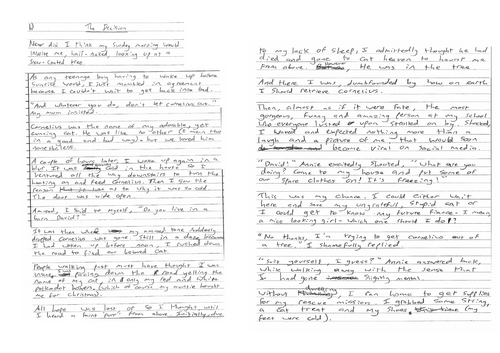 The Decision
Never did I think my Sunday morning would
involve me, half-naked, looking up at a
snow-coated tree.
As any teenage boy having to wake up before
sunrise would, I just mumbled in agreement
because I couldn't wait to get back into bed.
"And whatever you do, don't let Cornelius out."
My mum insisted.
Cornelius was the name of my adorable, yet
cunning cat. He was like no other (I mean this
in a good and bad way) but we loved him
nonetheless.
A couple of hours later, I woke up again in a
blur. It was cold in the house so I
ventured all the way downstairs to turn the
heating on and feed Cornelius. Then I saw the
reason to why it was so cold
The door was wide open.
Annoyed, I said to myself, "Do you live in a
barn David?"
It was then where my annoyed tone suddenly
drifted Cornelius was gone. Still in a daze
I had woken up before soon I rushed down
the road to find our beloved cat.
People walking past must have thought I was
down the road yelling the
name of my cat, in only my red and white
polkadot boxers, (which of course my auntie bought
me for Christmas).
All hope was loss or so I thought, until
I heard a faint purr from above. Initially, due
to my lack of sleep, I admittedly thought he had
died and gone to cat heaven to haunt me
from above. He was in the tree.
And there I was, dumbfounded by how on earth
I should retrieve Cornelius.
Then, almost as if it were fate, the most
gorgeous, funny and amazing person at my school
who everyone listened to upon strolled on by. Shocked
I waved and expected nothing more than a
laugh and a picture of me that would soon
become viral on social media.
"David!" Annie excitedly shouted, "What are you
doing? Come to my house and put some of
our spare clothes on! It's freezing!"
This was my chance, I could either wait
here and save my ungrateful, stupid cat or
I could get to know my future fiance. I mean
a nice looking girl. Which one should I do?
"No thanks, I'm trying to get Cornelius out of
a tree." I shamefully replied
"Suit yourself I guess?" Annie answered back,
while walking away with the sense that
I had gone slightly mental.
Without I ran home to get supplies
for my rescue mission. I grabbed some string,
a cat treat and my shoes (my
feet were cold).